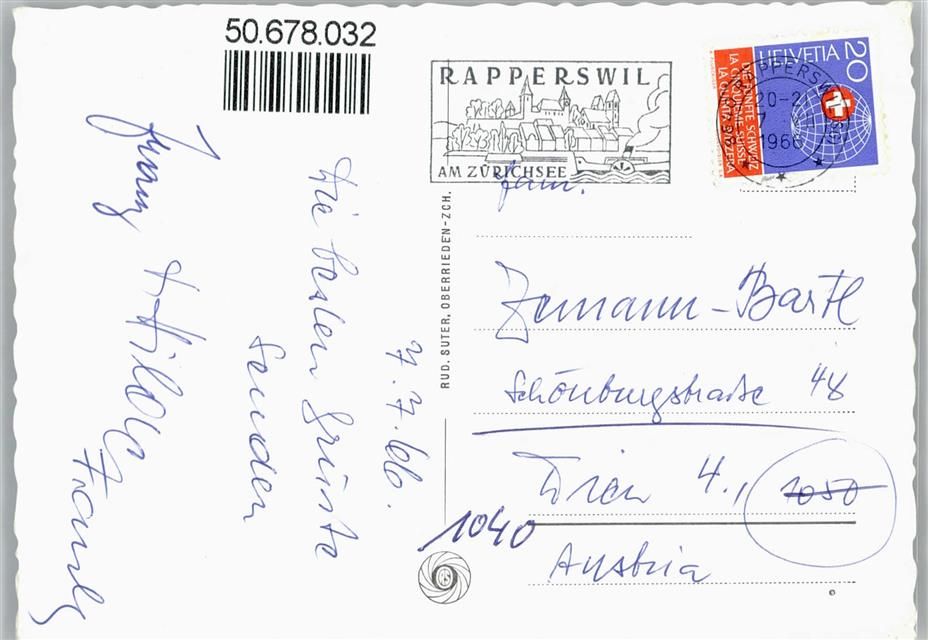 50.678.032
RAPPERSWIL
AM ZÜRICHSEE
HELVETIA 20
DIE FÜNFTE SCHWEIZ
LA CINQUIEME SUISSE
LA QUINTA SVIZZERA
RAPPERSWIL
20-2
7
1966
RUD. SUTER, OBERRIEDEN-ZCH.
7.7.66.
Die besten Grüsse
senden
Franz
+ Hilde
Fam.
Zemann-Bartl
Schönburgstraße 48
Wien 4., 1050
1040
Austria